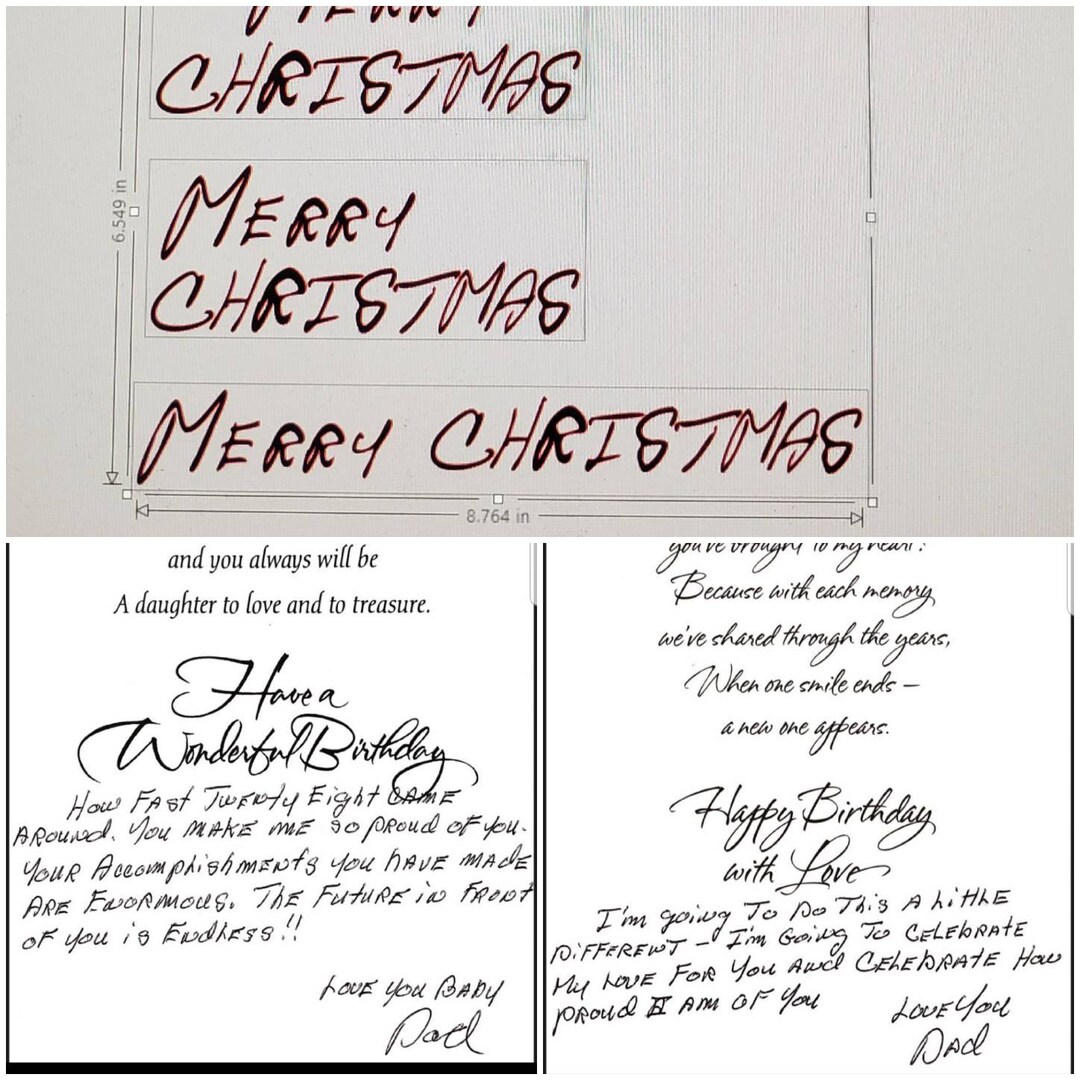 MERRY
CHRISTMAS
MERRY
CHRISTMAS
MERRY CHRISTMAS
6.549 in
8.764 in
and you always will be
A daughter to love and to treasure.
Have a
Wonderful Birthday
How FAST TWENTY Eight CAME
AROUND. You MAKE ME so pRoud of you.
YOUR Accomplishments you hAVE MAdE
ARE ENORMOUS. THE FUTURE in FRONT
OF you is ENdLESS!!
LOVE YOU BABY
Dad
you've brought to my heart!
Because with each memory
we've shared through the years,
When one smile ends –
a new one appears.
Happy Birthday
with Love
I'm going To Do This A LiTTLE
DiFFERENT – I'm Going To CELEbRATE
My LOVE FOR You ANd CELEbRATE How
pRoud I AM OF You
LOVE You
DAd